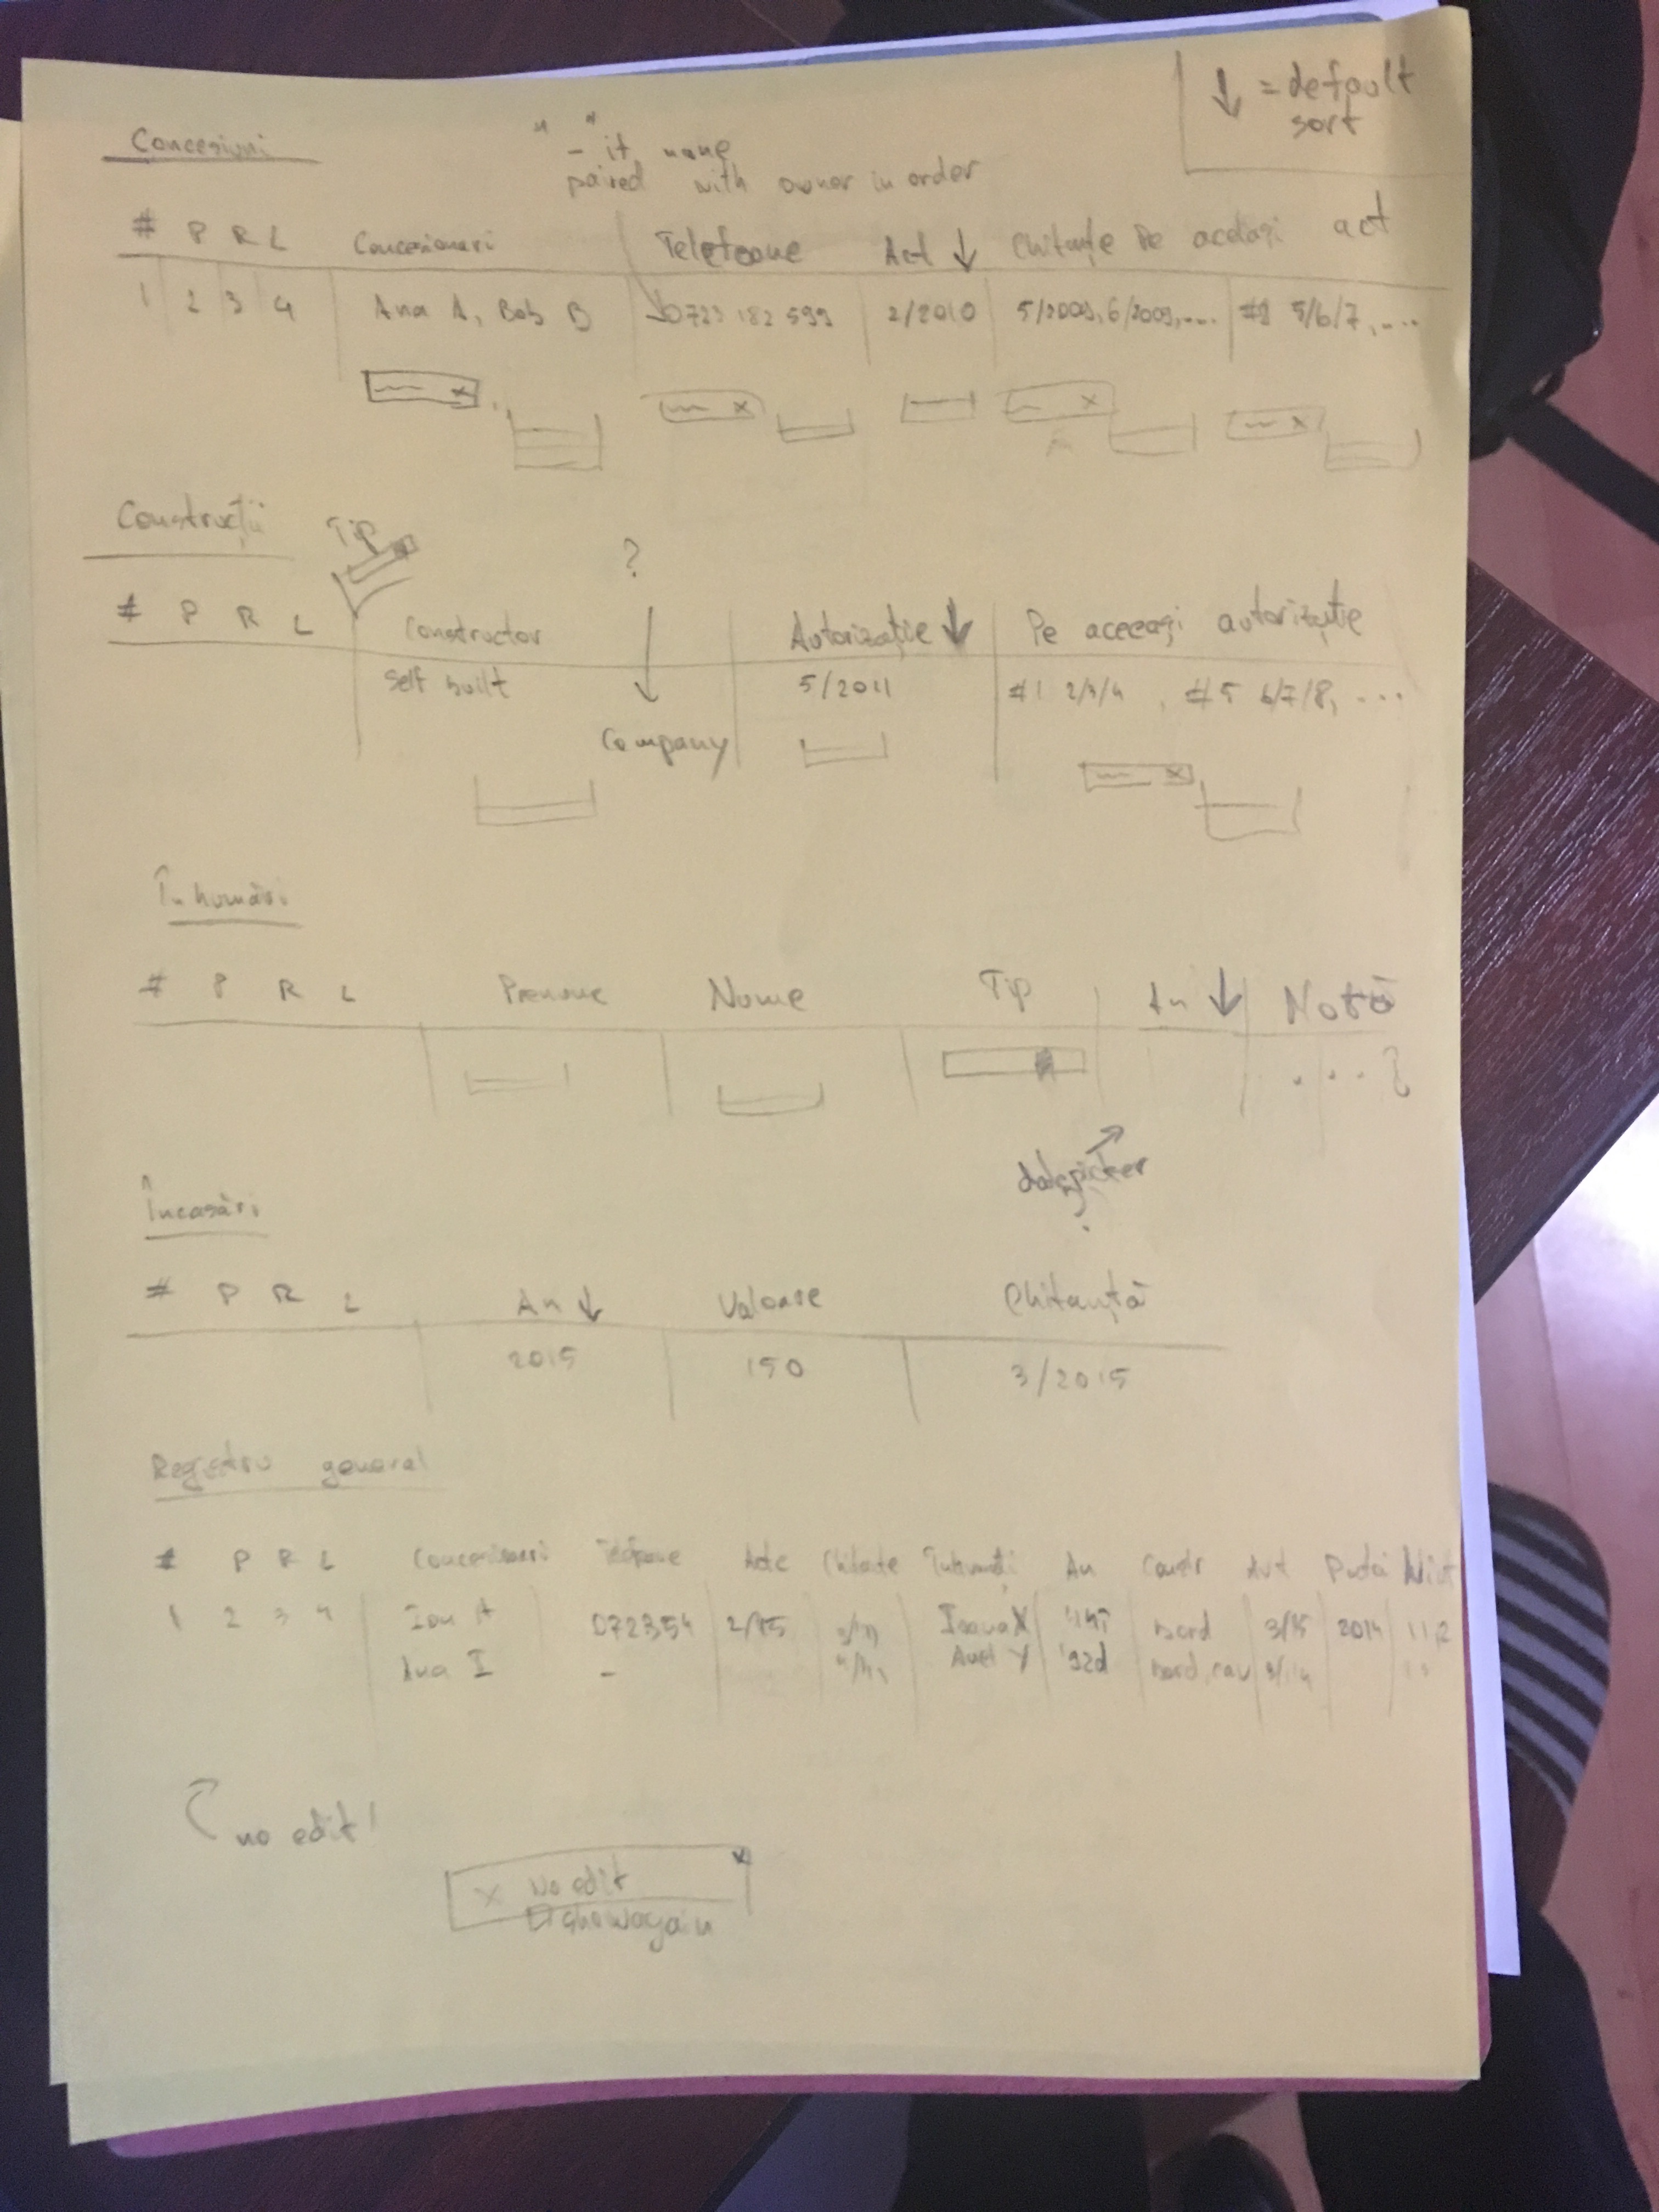 ↓ = default
sort
Concesiuni
"-" if none
paired with owner in order
# P R L Concesionari Telefoane Act ↓ Chitanțe Pe același act
1 2 3 4 Ana A, Bob B 0723 182 599 2/2010 5/2009, 6/2009,... 5/6/7, ...
x x x x
Construcții
Tip
?
# P R L Constructor Autorizație ↓ Pe aceeași autorizație
Self built 5/2011 #1 2/3/4, #5 6/7/8, ...
Company
x
Înhumări
# P R L Prenume Nume Tip An ↓ Notă
...
datepicker
?
Încasări
# P R L An ↓ Valoare Chitanță
2015 150 3/2015
Registru general
# P R L Concesionari Telefoane Acte Chitanțe Înhumați An Constr Aut
1 2 3 4 Ion A 072354 2/15 Ioana X bord 3/15 2014
Ana I - Aurel Y '92d bord, cav
no edit!
x
X No edit
show again